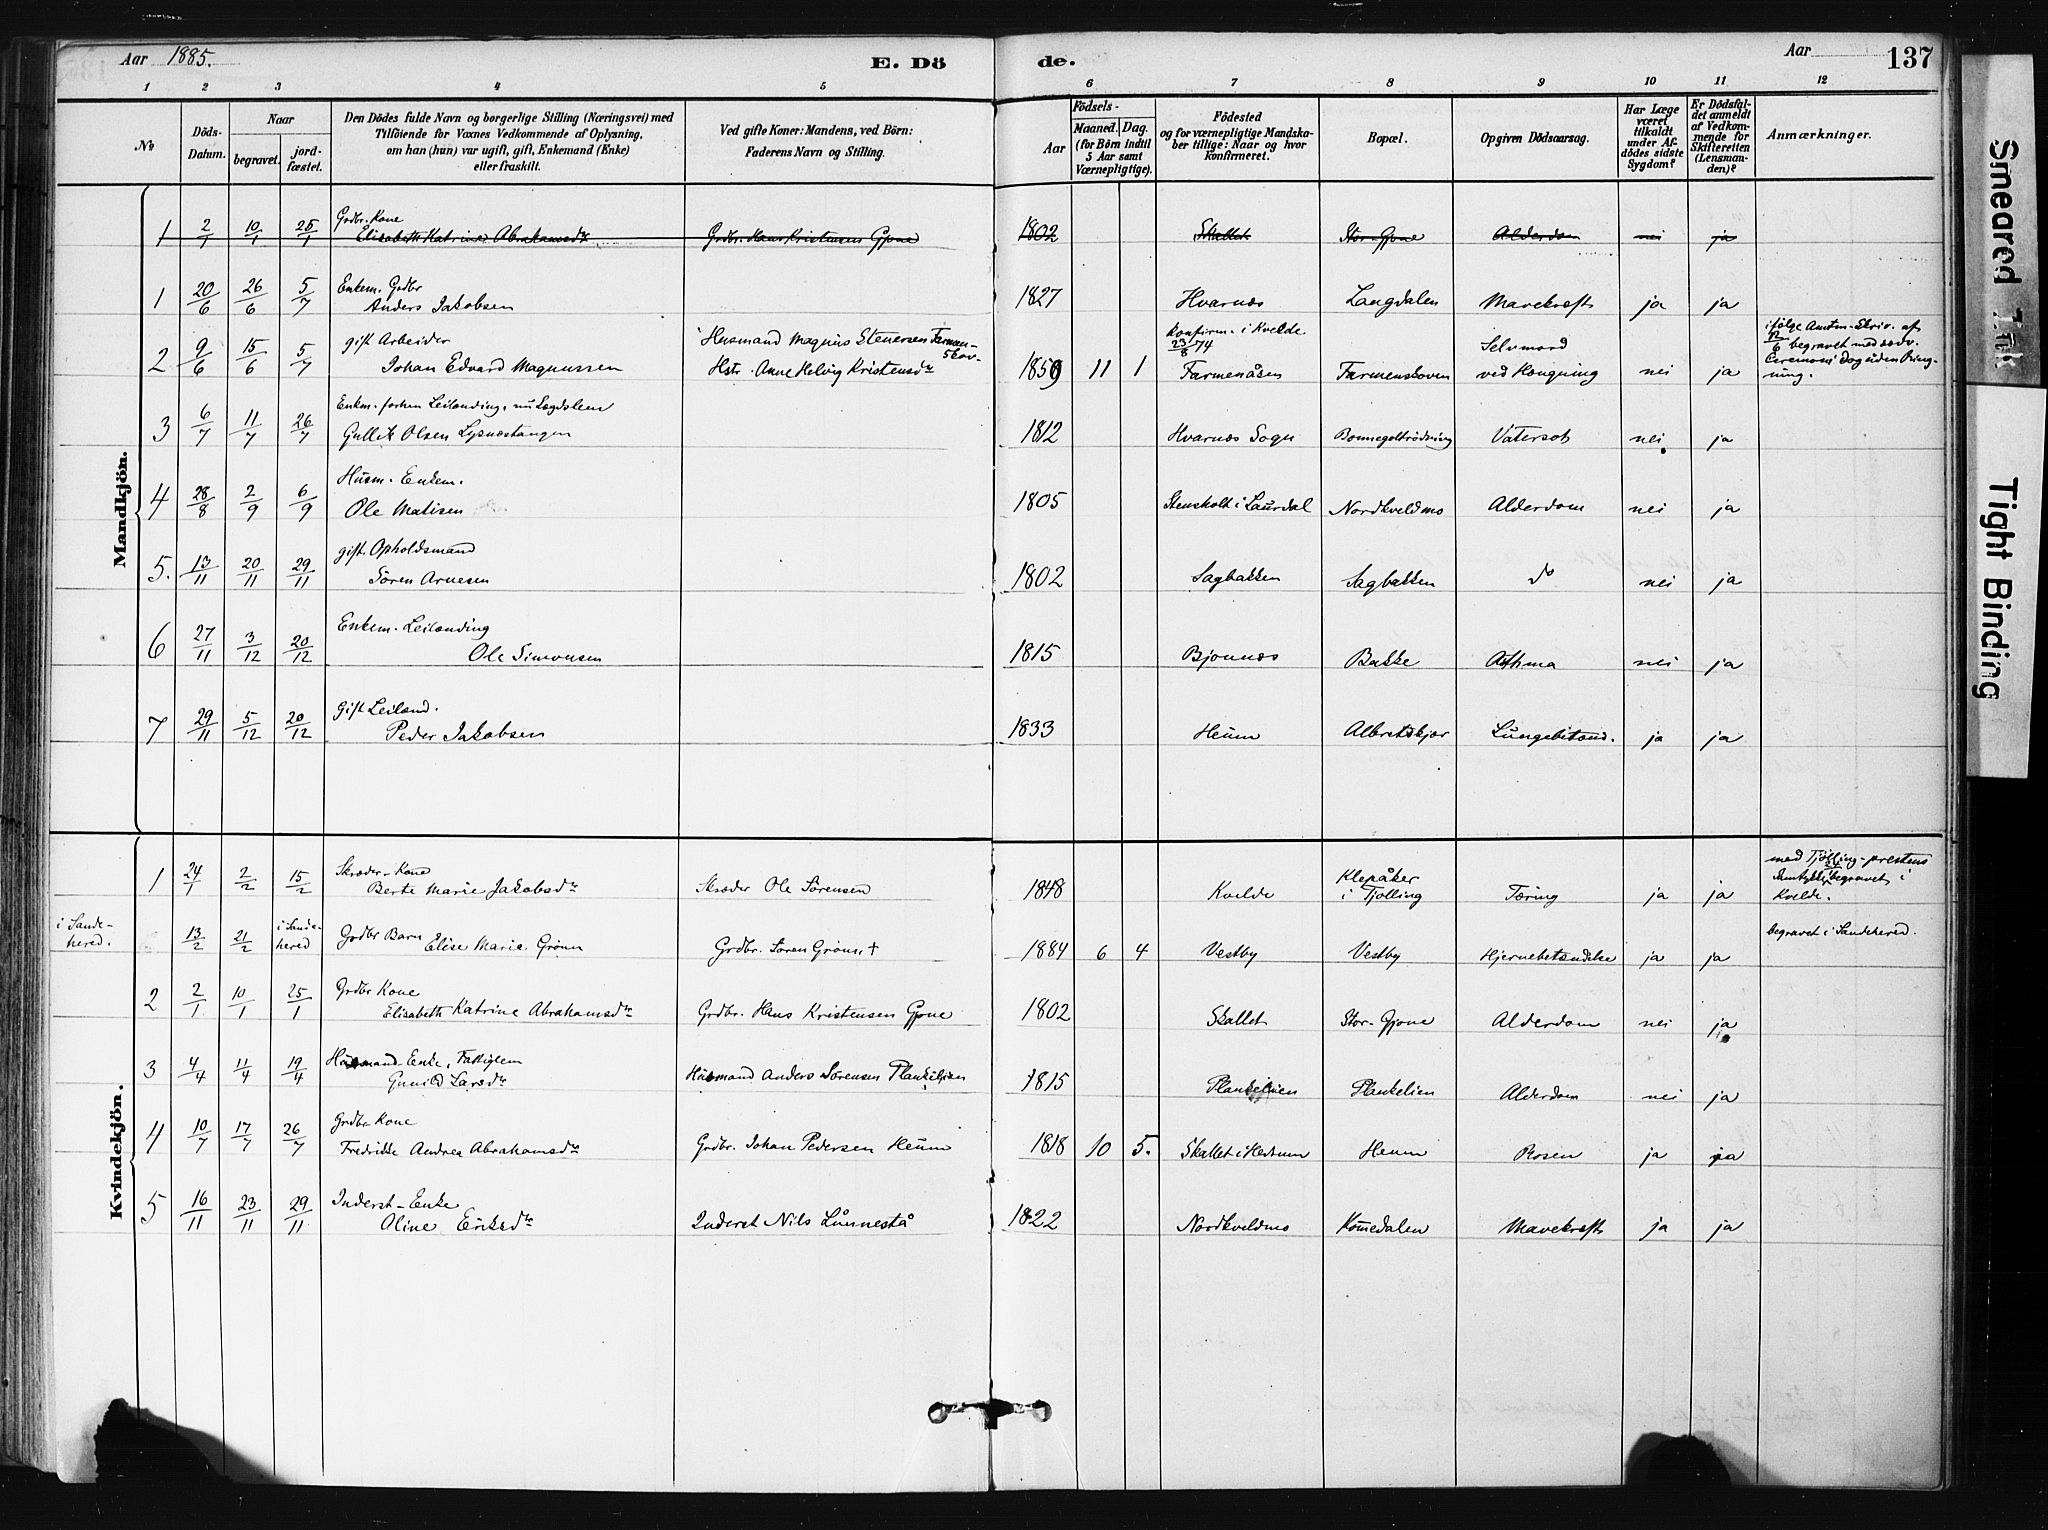 Aar 1885.
E. Dö
de.
Aar
137
1 2 3 4 5 6 7 8 9 10 11 12
№
Döds-Datum.
Naar
begravet.
jord-fæstet.
Den Dödes fulde Navn og borgerlige Stilling (Næringsvei) med
Tilföiende for Voxnes Vedkommende af Oplysning,
om han (hun) var ugift, gift, Enkemand (Enke)
eller fraskilt.
Ved gifte Koner: Mandens, ved Börn:
Faderens Navn og Stilling.
Födsels-
Aar
Maaned. Dag.
(for Börn indtil
5 Aar samt
Værnepligtige).
Födested
og for værnepligtige Mandska-
ber tillige: Naar og hvor
konfirmeret.
Bopæl.
Opgiven Dödsaarsag.
Har Læge
været
tilkaldt
under Af-
dödes sidste
Sygdom?
Er Dödsfal-
det anmeldt
af Vedkom-
mende for
Skifteretten
(Lensman-
den)?
Anmærkninger.
Mandkjön.
Grdbr. Kone
1 2/1 10/1 25/1 Elisabeth Katrine Abrahamsdtr Grdbr. Hans Kristensen Gjone 1802 Skallet Stor-Gjone Alderdom nei ja
Enkem. Grdbr
1 20/6 26/6 5/7 Anders Jakobsen 1827 Hvarnes Langdalen Mavekræft ja ja
gift Arbeider Husmand Magnus Stenersen Farmen-skov- konfirm. i Kvelde 23/8 74 Selvmord
2 9/6 15/6 5/7 Johan Edvard Magnussen Hstr. Anne Helvig Kristensdtr 1859 11 1 Farmenåsen Farmenskoven ved Hængning nei ja
ifølge Amtm. Skriv. af
12/6 begravet med sedv.
Ceremoni dog uden Ring-
ning.
Enkem. forhen Leilending, nu Lægdslem
3 6/7 11/7 26/7 Gullik Olsen Lysnestangen 1812 Hvarnes Sogn Bonnegoltrødning Vatersot nei ja
Husm. Enkem.
4 28/8 2/9 6/9 Ole Matisen 1805 Stensholt i Laurdal Nordkveldmo Alderdom nei ja
gift Opholdsmand
5. 13/11 20/11 29/11 Sören Arnesen 1802 Sagbakken Sagbakken do nei ja
Enkem. Leilending
6 27/11 3/12 20/12 Ole Simonsen 1815 Bjonnes Bakke Asthma nei ja
gift Leilend.
7 29/11 5/12 20/12 Peder Jakobsen 1833 Heum Albretskjær Lungebetænd. ja ja
Kvindekjön.
Skræder-Kone
1 24/1 2/2 15/2 Berte Marie Jakobsdtr Skræder Ole Sörensen 1848 Kvelde Klepåker i Tjölling Tæring ja ja
med Tjölling-prestens
Samtykke begravet i
Kvelde.
i Sande-
hered.
13/2 21/2 i Sande-hered Grdbr Barn Elise Marie Grönn Grdbr. Sören Grönn † 1884 6 4 Vestby Vestby Hjernebetændelse ja ja begravet i Sandehered.
Grdbr Kone
2 2/1 10/1 25/1 Elisabeth Katrine Abrahamsdtr Grdbr. Hans Kristensen Gjone 1802 Skallet Stor-Gjone Alderdom nei ja
Husmand-Enke, Fattiglem
3 4/4 11/4 19/4 Gunild Larsdtr Husmand Anders Sörensen Plankelien 1815 Plankelien Plankelien Alderdom nei ja
Grdbr Kone
4 10/7 17/7 26/7 Fredrikke Andrea Abrahamsdtr Grdbr. Johan Pedersen Heum 1818 10 5. Skallet i Hedrum Heum Rosen ja ja
Inderst-Enke
5 16/11 23/11 29/11 Oline Eriksdtr Inderst Nils Lunnestå 1822 Nordkveldmo Komedalen Mavekræft ja ja
Smeared Ink
Tight Binding